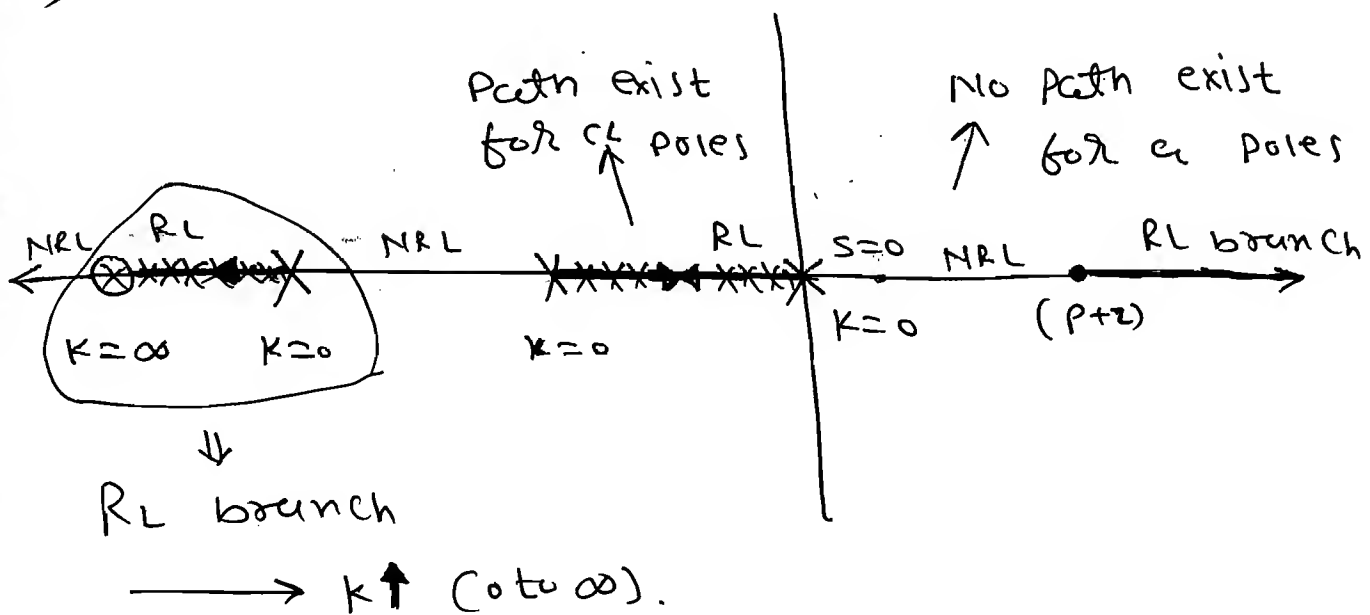 Path exist
for CL poles
No Path exist
for CL poles
NRL RL NRL RL S=0 NRL RL branch
K=∞ K=0 K=0 K=0 (P+z)
⇓
RL branch
⟶ K↑ (0 to ∞).